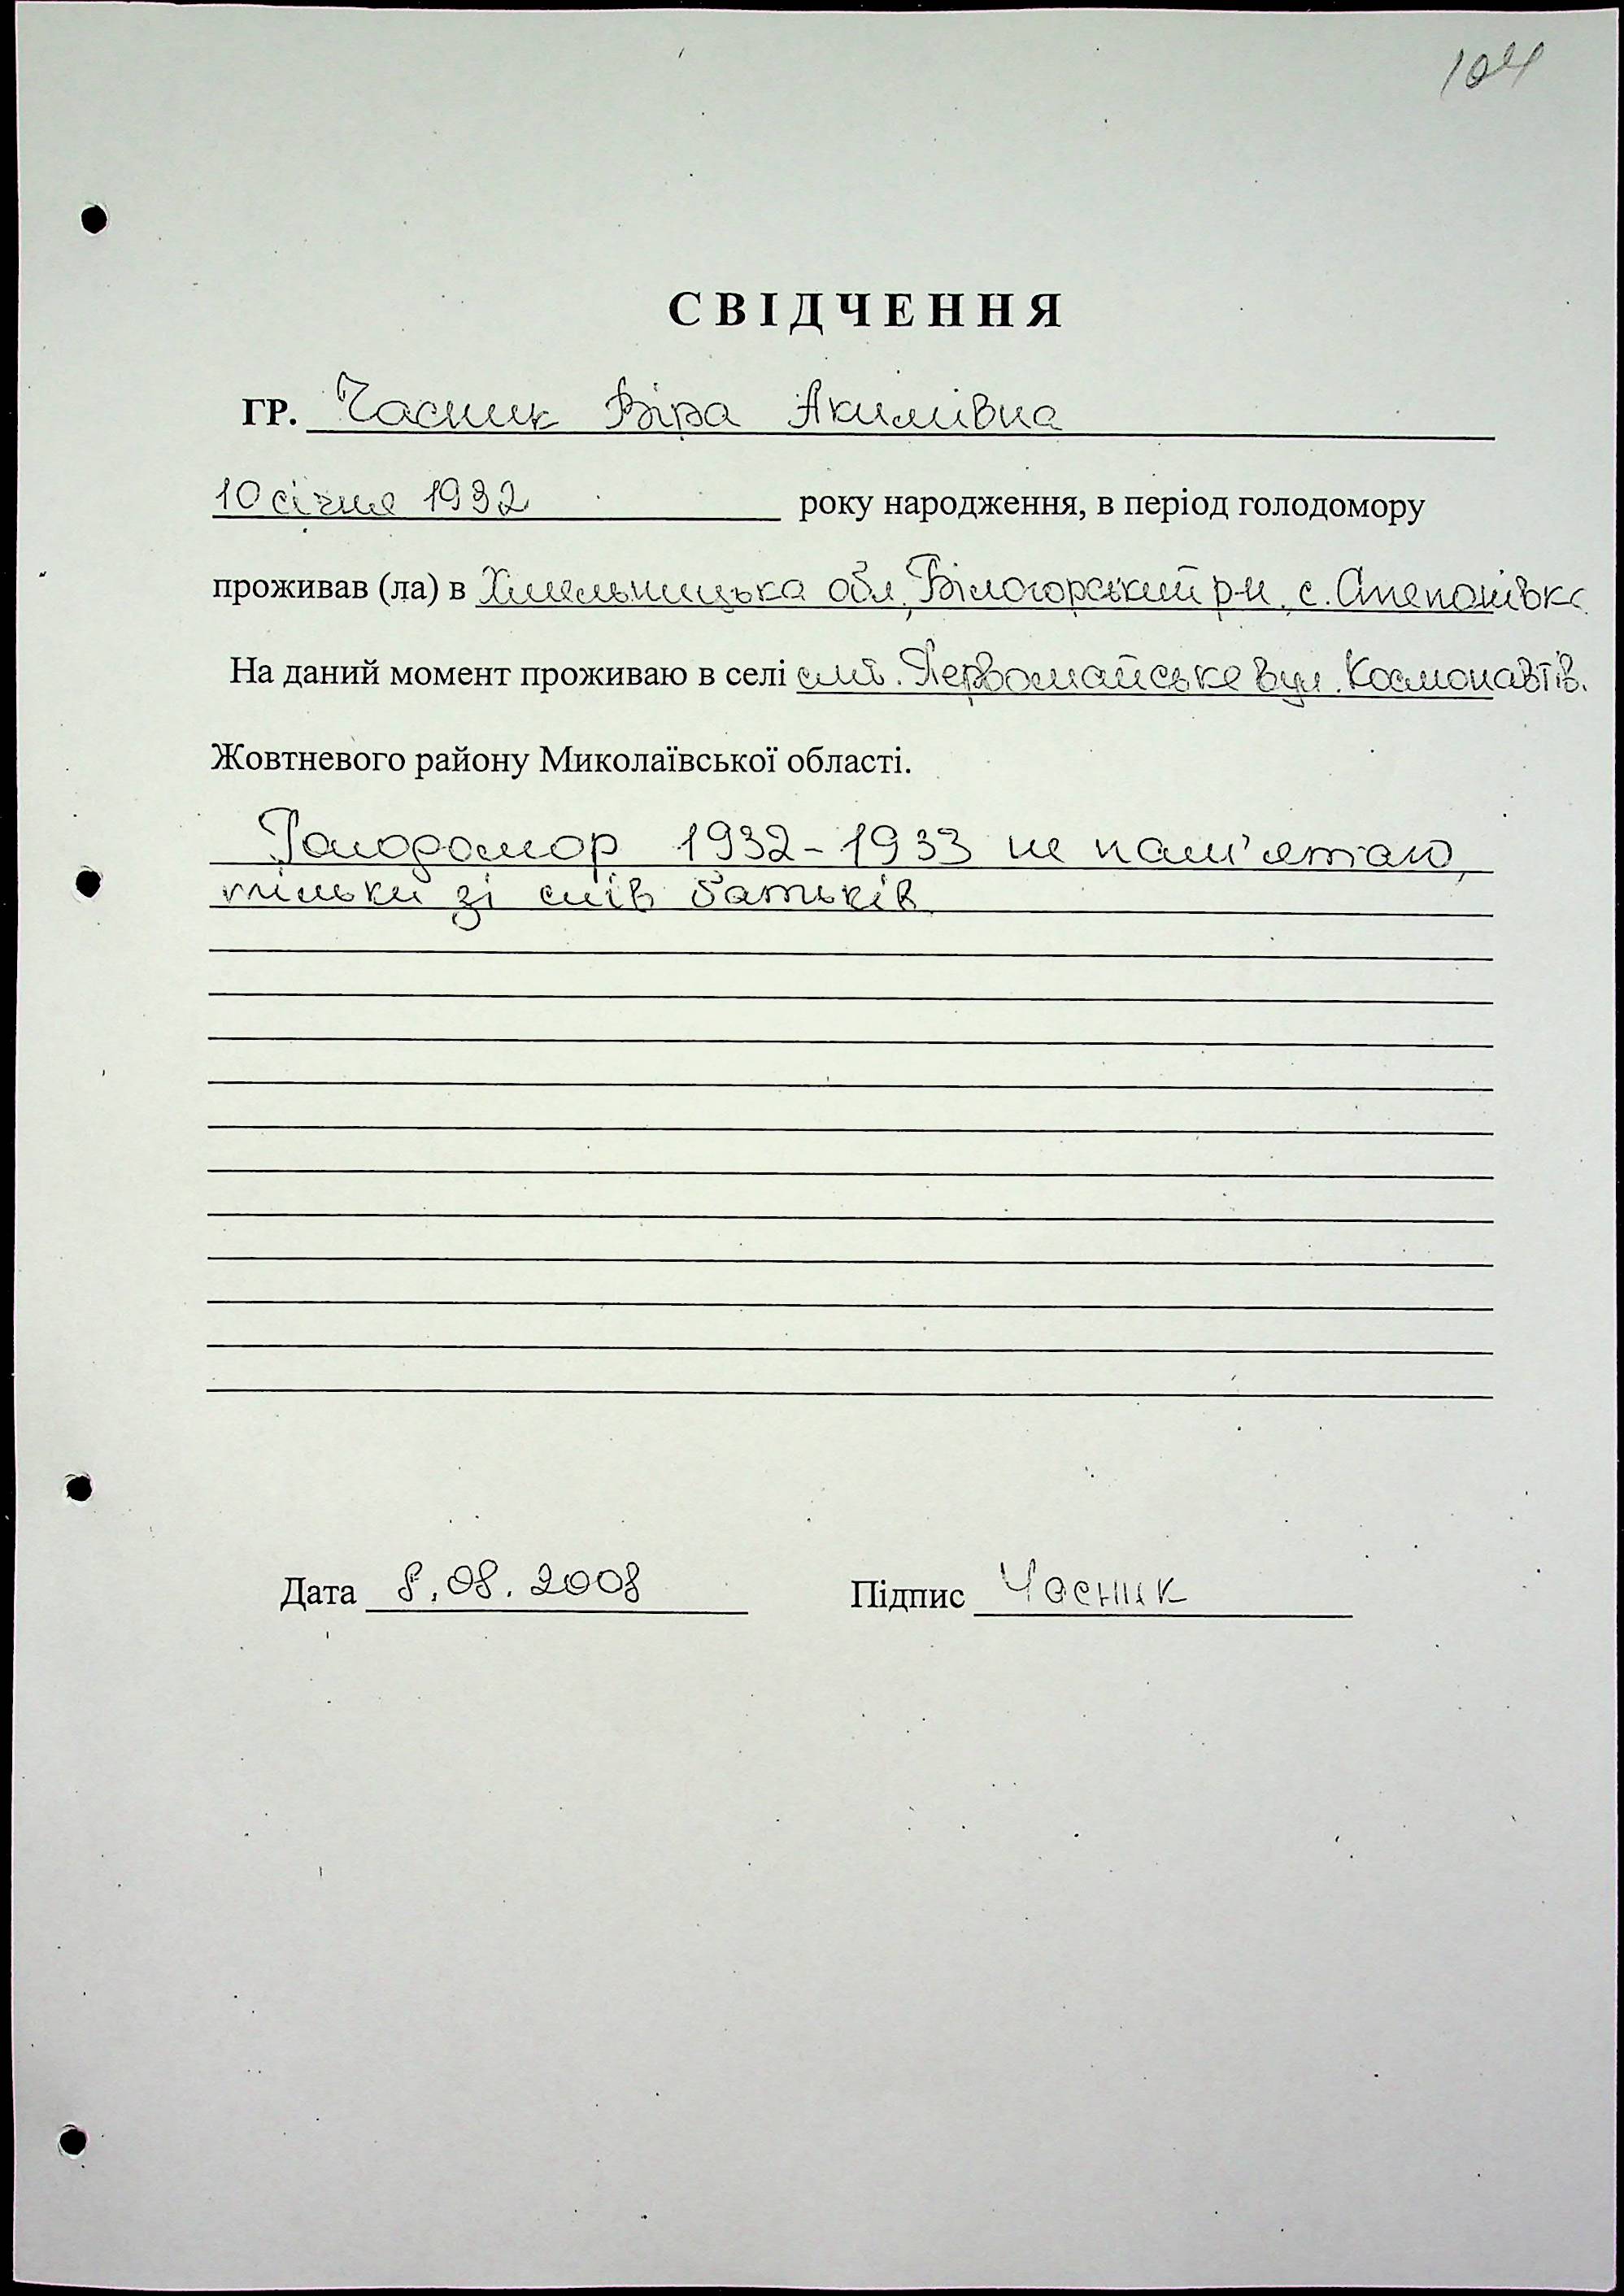 104
СВІДЧЕННЯ
ГР. Часник Віра Акимівна
10 січня 1932 року народження, в період голодомору
проживав (ла) в Хмельницька обл, Білогорський р-н, с. Степанівка
На даний момент проживаю в селі смт. Первомайське вул. Космонавтів.
Жовтневого району Миколаївської області.
Голодомор 1932-1933 не пам'ятаю,
тільки зі слів батьків
Дата 8.08.2008 Підпис Часник